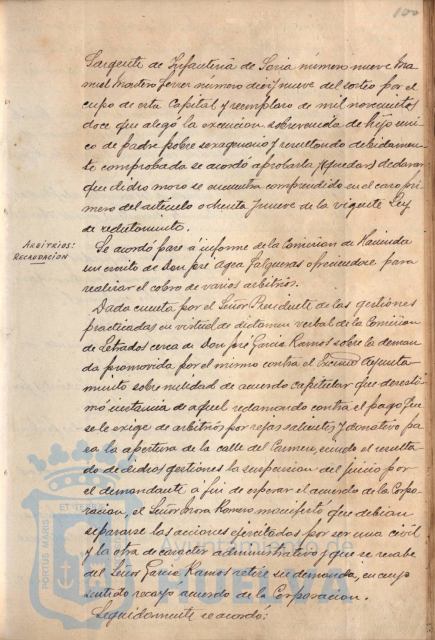 100
Sargento de Infantería de Soria número nueve Ma
nuel Mastro Ferrer número diez y nueve del sorteo por el
cupo de esta Capital y reemplazo de mil novecientos
doce que alegó la excepcion sobrevenida de hijo uni
co de padre pobre sexagenario y resultando debidamen-
te comprobada se acordó aprobarla, y declarar
que dicho mozo se encuentra comprendido en el caso pri
mero del artículo ochenta y nueve de la vigente Ley
de reclutamiento.
ARBITRIOS:
RECAUDACION
Se acordó pase á informe de la Comision de Hacienda
un escrito de Don José Agea Falgueras ofreciendose para
realizar el cobro de varios arbitrios.
Dada cuenta por el Señor Presidente de las gestiones
practicadas en virtud de dictamen verbal de la Comision
de Letrados cerca de Don José Garcia Ramos sobre la deman
da promovida por el mismo contra el Excmo Ayunta
miento sobre nulidad de acuerdo capitular que desesti
mó instancia de aquel reclamando contra el pago que
se le exige de arbitrios por rejas salientes y donativo pa
ra la apertura de la calle del Carmen, siendo el resulta
do de dichas gestiones la suspension del juicio por
el demandante á fin de esperar el acuerdo de la Corpo
racion, el Señor Mora Romero manifestó que debian
separarse las acciones ejercitadas por ser una civil
y la otra de carácter administrativo y que se recabe
del Señor Garcia Ramos retire su demanda, en cuyo
sentido recayó acuerdo de la Corporacion.
Seguidamente se acordó:
PORTUS MAGNUS
ET TERRA
Ayuntamiento